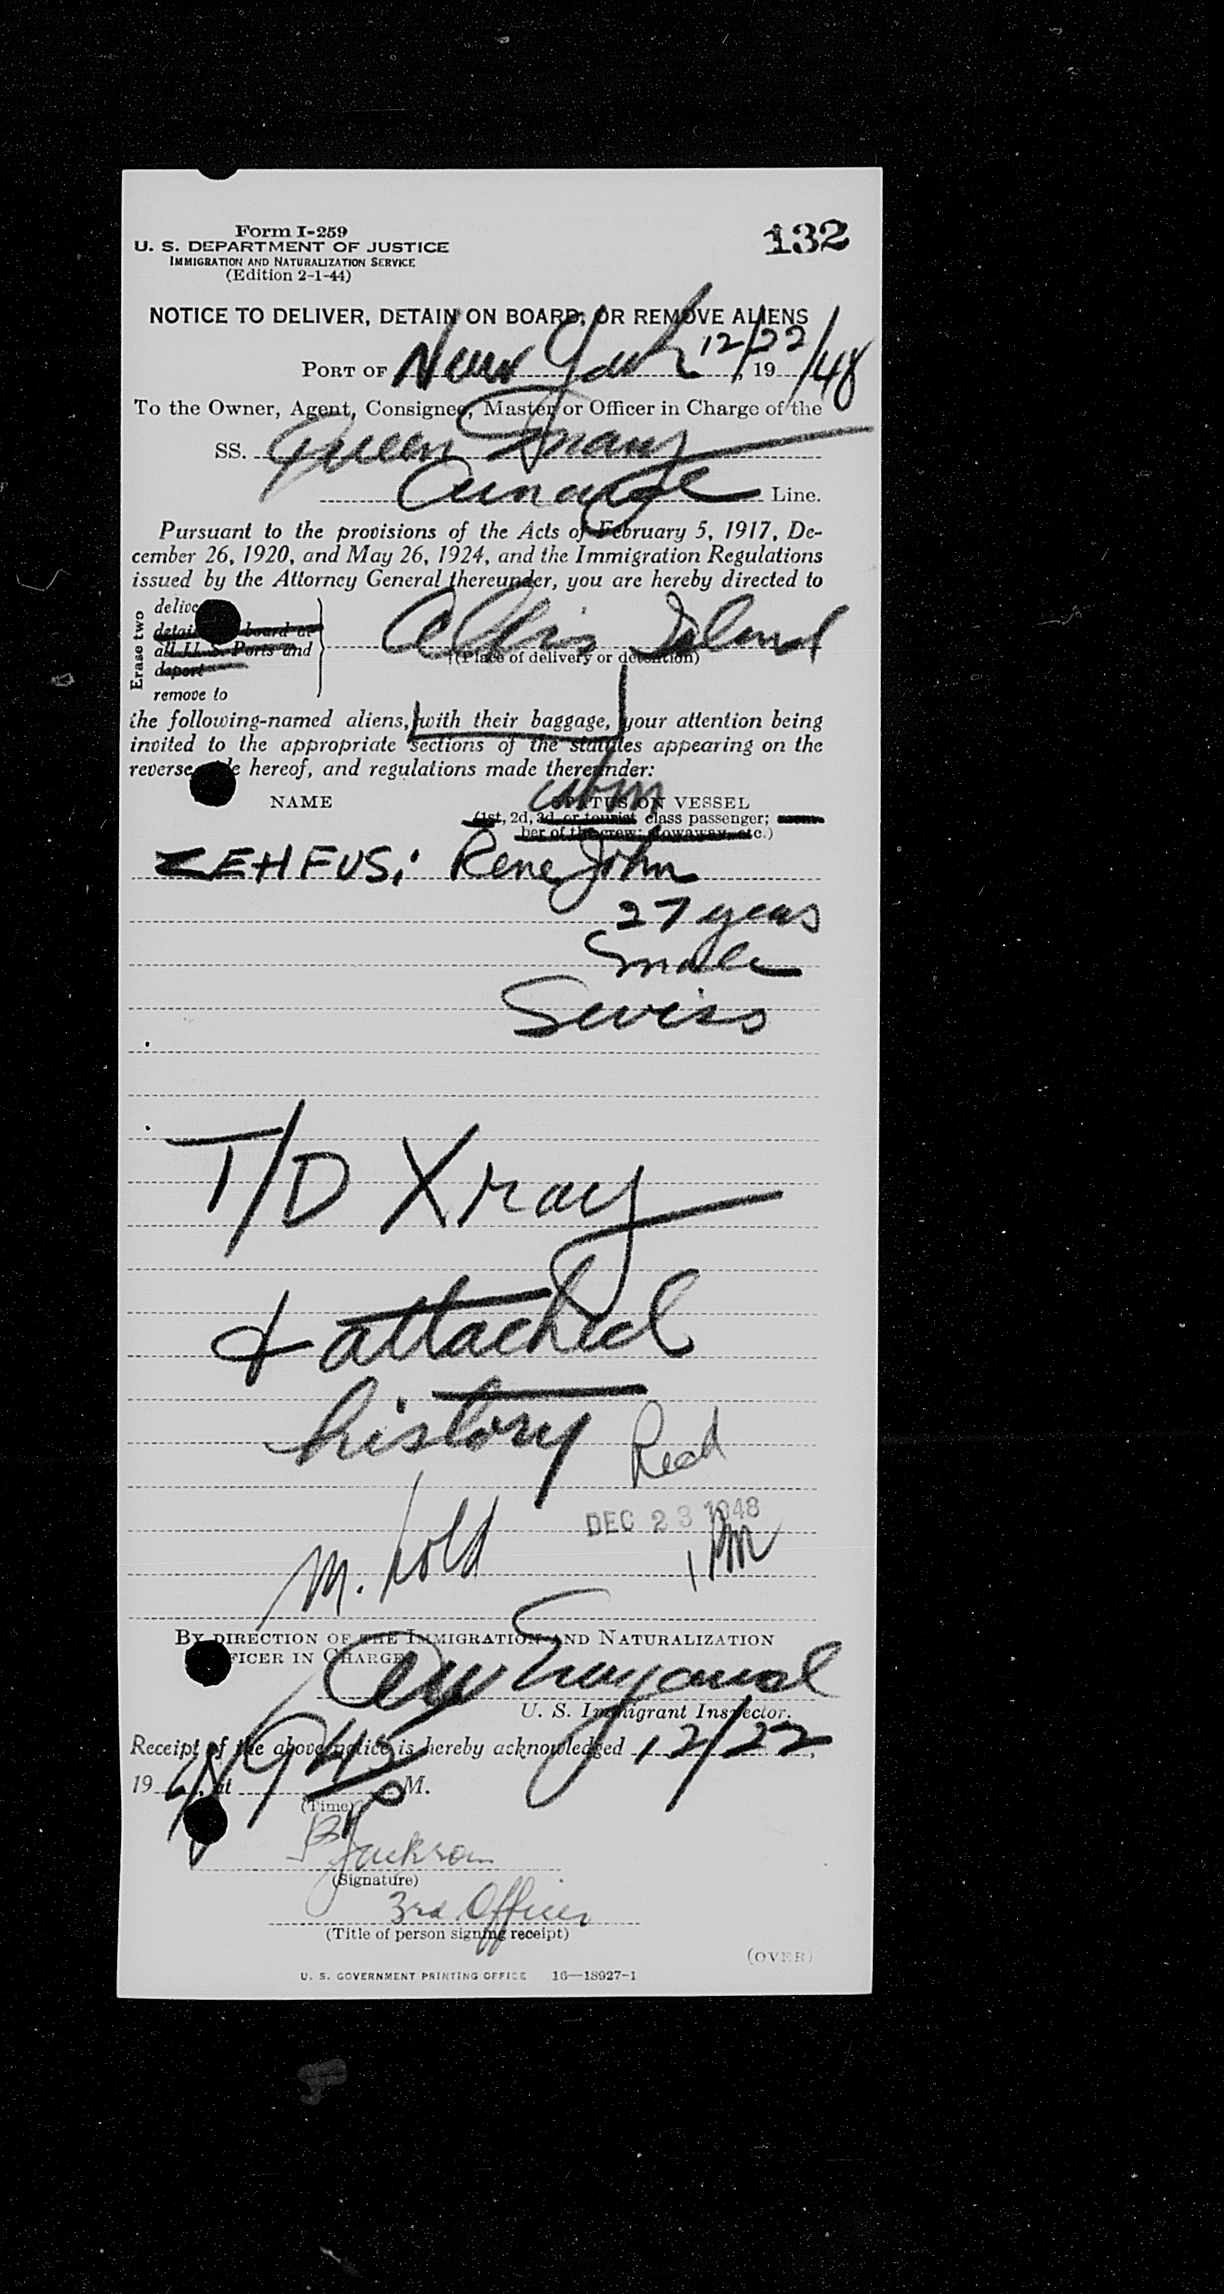 Form I-259
132
U. S. DEPARTMENT OF JUSTICE
IMMIGRATION AND NATURALIZATION SERVICE
(Edition 2-1-44)
NOTICE TO DELIVER, DETAIN ON BOARD, OR REMOVE ALIENS
PORT OF New York 12/22, 19/48
To the Owner, Agent, Consignee, Master or Officer in Charge of the
SS. Queen Mary
Cunard Line.
Pursuant to the provisions of the Acts of February 5, 1917, De-
cember 26, 1920, and May 26, 1924, and the Immigration Regulations
issued by the Attorney General thereunder, you are hereby directed to
Erase two
board at
all U. S. Ports and
deport
remove to
Ellis Island
(Place of delivery or detention)
the following-named aliens, with their baggage, your attention being
invited to the appropriate sections of the statutes appearing on the
reverse hereof, and regulations made thereunder:
cabin
NAME STATUS ON VESSEL
(1st, 2d, 3d, or tourist class passenger; mem-
ber of the crew; stowaway, etc.)
ZEHFUS; Rene John
27 years
male
Swiss
T/D Xray
& attached
history
Recd
DEC 23 1948
1 PM
M. hold
BY DIRECTION OF THE IMMIGRATION AND NATURALIZATION
IN CHARGE
U. S. Immigrant Inspector.
Receipt of the above notice is hereby acknowledged 12/22,
1948, at 945 P M.
(Time)
Jackson
(Signature)
3rd Officer
(Title of person signing receipt)
(OVER)
U. S. GOVERNMENT PRINTING OFFICE 16—18927-1